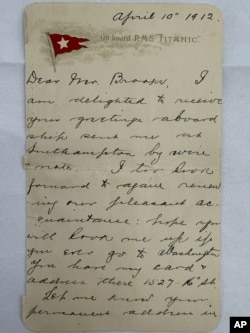 April 10th 1912.
On board R.M.S "TITANIC"
Dear Mrs Brooks, I
am delighted to receive
your greetings aboard
ship sent me at
Southampton by wire
& note. I too look
forward to again renew
ing our pleasant ac
quaintance: hope you
will look me up if
you ever go to Washington
You have my card &
address there 1527-16" St.
Let me know your
permanent address in
AP